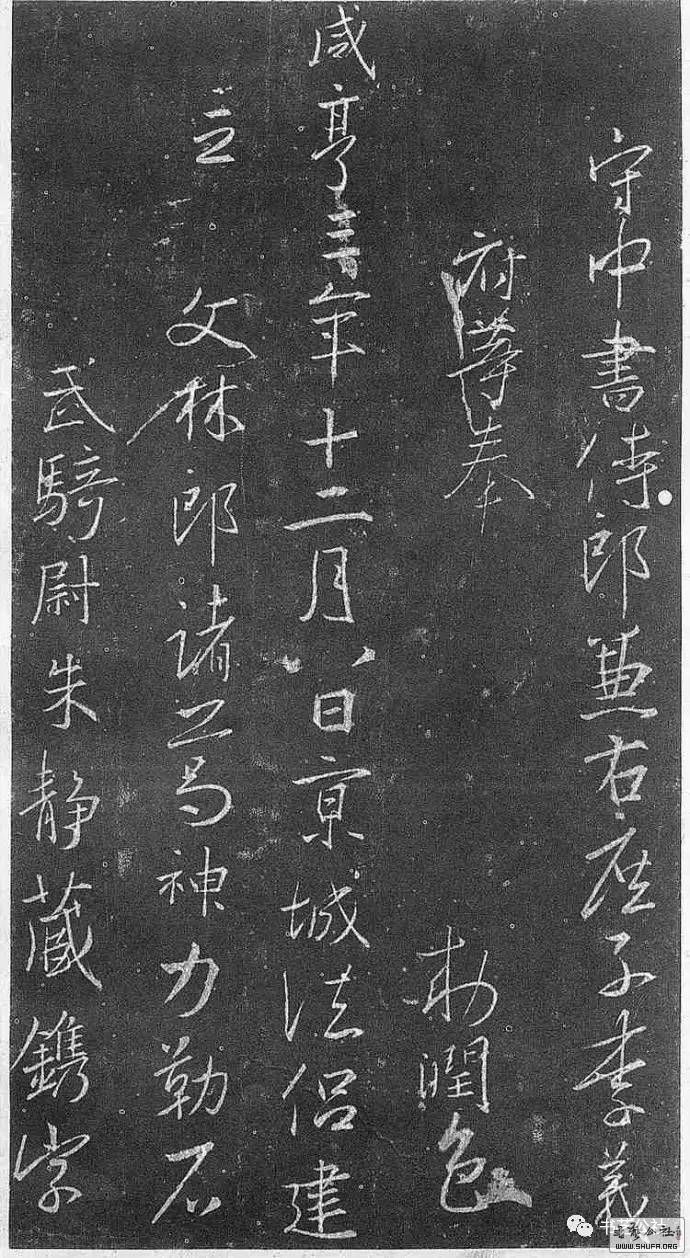 守中書侍郎兼右庶子李義
府等奉 勅潤色
咸亨三年十二月八日京城法侶建
立 文林郎諸葛神力勒石
武騎尉朱靜藏鐫字
书艺公社
WWW.SHUFA.ORG